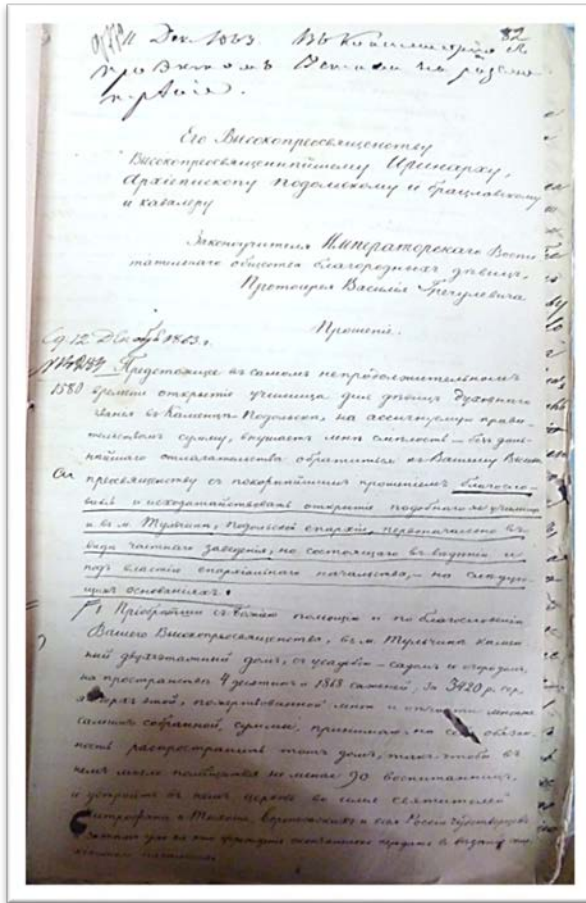 11 Дек. 1863. Въ Консисторію
82
Его Высокопреосвященству
Высокопреосвященнѣйшему Иринарху,
Архіепископу Подольскому и Брацлавскому
и кавалеру
Законоучителя Императорскаго Воспи
тательнаго общества благородныхъ дѣвицъ,
Протоіерея Василія Гречулевича
Прошеніе.
12 Декабр 1863 г.
Предстоящее въ самомъ непродолжительномъ
1580 времени открытіе училища для дѣвицъ духовнаго
званія въ Каменцѣ-Подольскѣ, на ассигнуемую прави-
тельствомъ сумму, внушаетъ мнѣ смѣлость – безъ даль-
нѣйшаго отлагательства обратиться къ Вашему Высоко
преосвященству съ покорнѣйшимъ прошеніемъ благосло-
вить и исходатайствовать открытіе подобнаго же училища
и въ м. Тульчинѣ, Подольской епархіи, первоначально въ
видѣ частнаго заведенія, но состоящаго въ вѣдѣніи и
подъ властію епархіальнаго начальства, – на слѣдую-
щихъ основаніяхъ:
1 Пріобрѣтши съ Божію помощію и по благословенію
Вашего Высокопреосвященства, въ м. Тульчинѣ камен
ный двухэтажный домъ, съ усадьбою – садомъ и огородомъ,
на пространствѣ 4 десятинъ и 1863 саженей, за 3420 р. сер.
пожертвованной мною и отчасти мною же
самимъ собранной, суммы, принимаю на себя обязан-
ность распространить этотъ домъ, такъ чтобы въ
немъ могло помѣщаться не менѣе 90 воспитанницъ,
и устроить въ немъ церковь во имя святителей
Митрофана и Тихона, воронежскихъ и всея Россіи чудотворцевъ